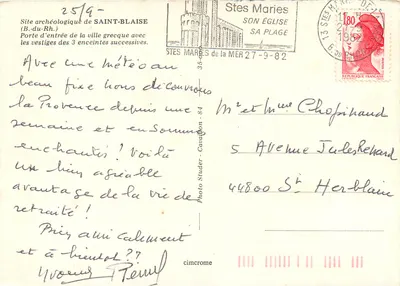 25/9-
Site archéologique de SAINT-BLAISE
(B.-du-Rh.)
Porte d'entrée de la ville grecque avec
les vestiges des 3 enceintes successives.
Avec une météo au
beau fixe nous découvrons
la Provence depuis une
semaine et en sommes
enchantés! Voilà
un bien agréable
avantage de la vie de
retraité!
Bien amicalement
et à bientôt??
Yvonne
Stes Maries
SON ÉGLISE
SA PLAGE
STES MARIES de la MER 27-9-82
1,80
Photo Studer - Cavaillon - 84
cimcrome
Mr et Mme
5 Avenue Jules Renard
44800 St Herblain